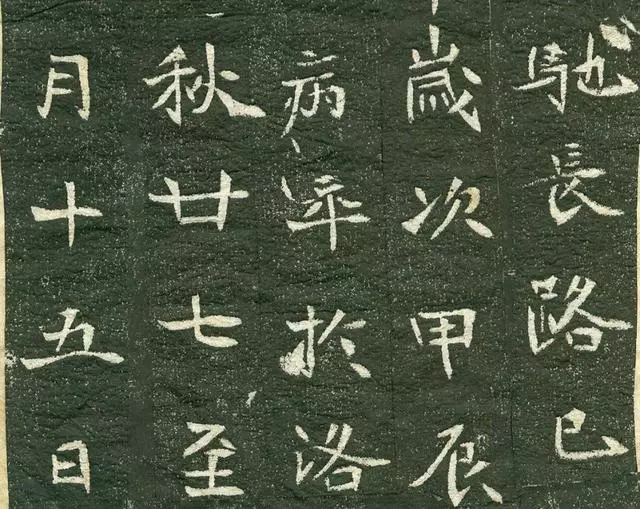 馳長路已
歲次甲辰
病卒扵洛
秋廿七至
月十五日